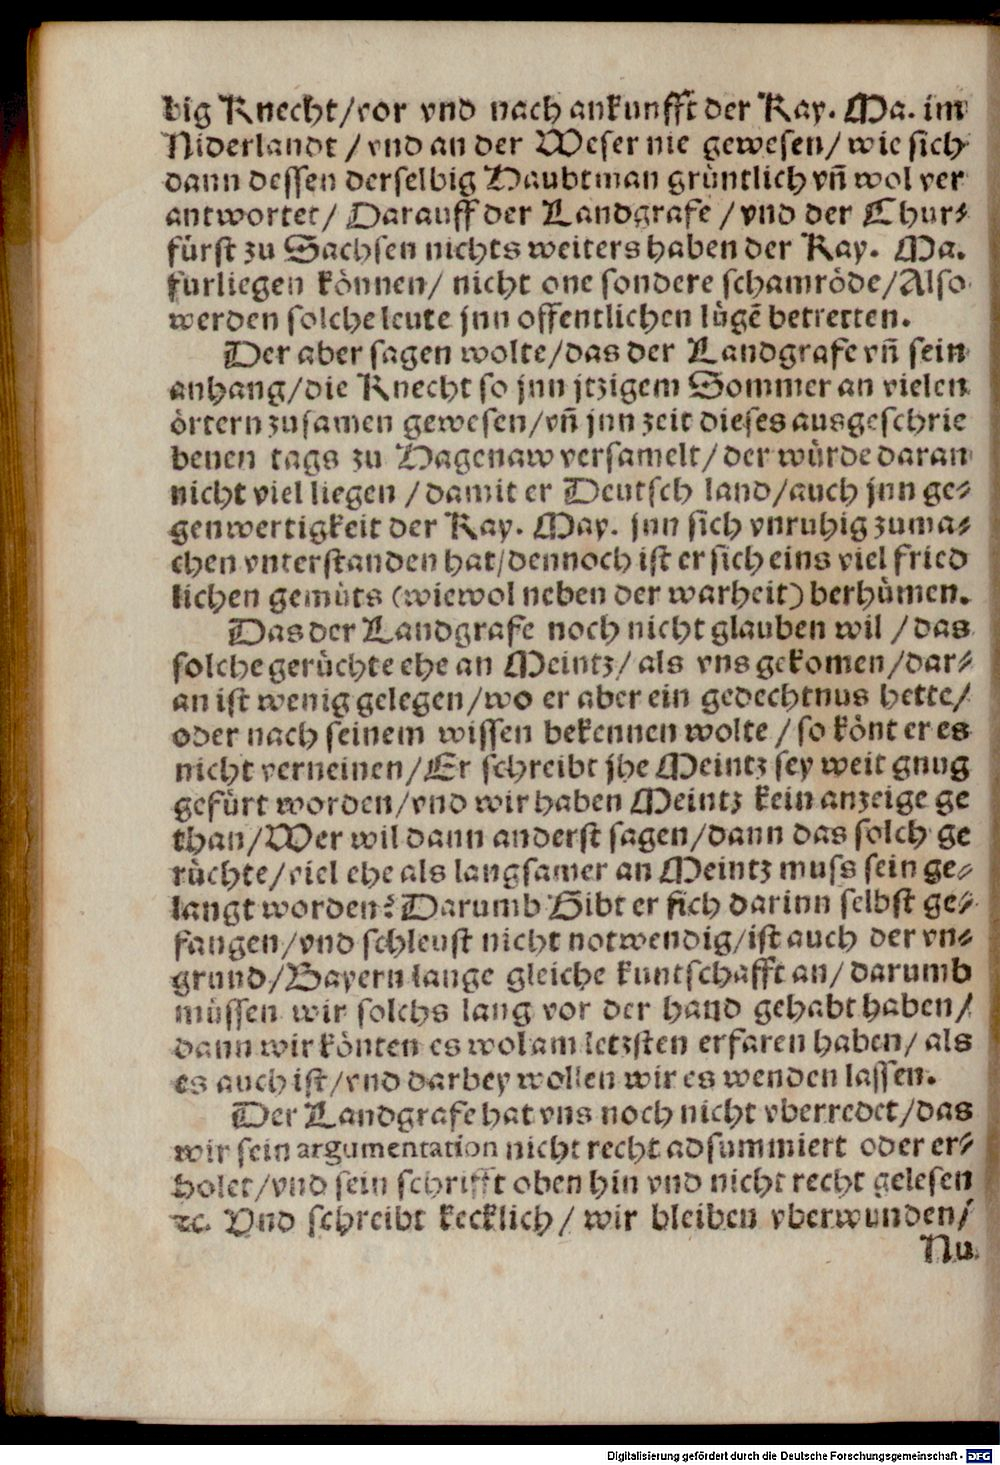 big Knecht/vor vnd nach ankunfft der Kay. Ma. im
Niderlandt / vnd an der Weser nie gewesen/ wie sich
dann dessen derselbig Haubtman grüntlich vñ wol ver
antwortet/ Darauff der Landgrafe /vnd der Chur⸗
fürst zu Sachsen nichts weiters haben der Kay. Ma.
fürliegen können/ nicht one sondere schamröde/Also
werden solche leute jnn offentlichen lügẽ betretten.
Der aber sagen wolte/das der Landgrafe vñ sein
anhang/die Knecht so jnn jtzigem Sommer an vielen
örtern zusamen gewesen/vñ jnn zeit dieses ausgeschrie
benen tags zu Hagenaw versamelt/ der würde daran
nicht viel liegen /damit er Deutsch land/auch jnn ge⸗
genwertigkeit der Kay. May. jnn sich vnruhig zuma⸗
chen vnterstanden hat/dennoch ist er sich eins viel fried
lichen gemüts (wiewol neben der warheit) berhümen.
Das der Landgrafe noch nicht glauben wil /das
solche gerüchte ehe an Meintz/ als vns gekomen/dar⸗
an ist wenig gelegen/wo er aber ein gedechtnus hette/
oder nach seinem wissen bekennen wolte /so könt er es
nicht verneinen/Er schreibt jhe Meintz sey weit gnug
gefürt worden/vnd wir haben Meintz kein anzeige ge
than/Wer wil dann anderst sagen/dann das solch ge
rüchte/viel ehe als langsamer an Meintz muss sein ge⸗
langt worden? Darumb Gibt er sich darinn selbst ge⸗
fangen/vnd schleust nicht notwendig/ist auch der vn⸗
grund/Bayern lange gleiche kuntschafft an/ darumb
müssen wir solchs lang vor der hand gehabt haben/
dann wir könten es wol am letzsten erfaren haben/ als
es auch ist/vnd darbey wollen wir es wenden lassen.
Der Landgrafe hat vns noch nicht vberredet/das
wir sein argumentation nicht recht adsummiert oder er⸗
holet/vnd sein schrifft oben hin vnd nicht recht gelesen
ꝛc. Vnd schreibt kecklich/ wir bleiben vberwunden/
Nu
Digitalisierung gefördert durch die Deutsche Forschungsgemeinschaft - DFG